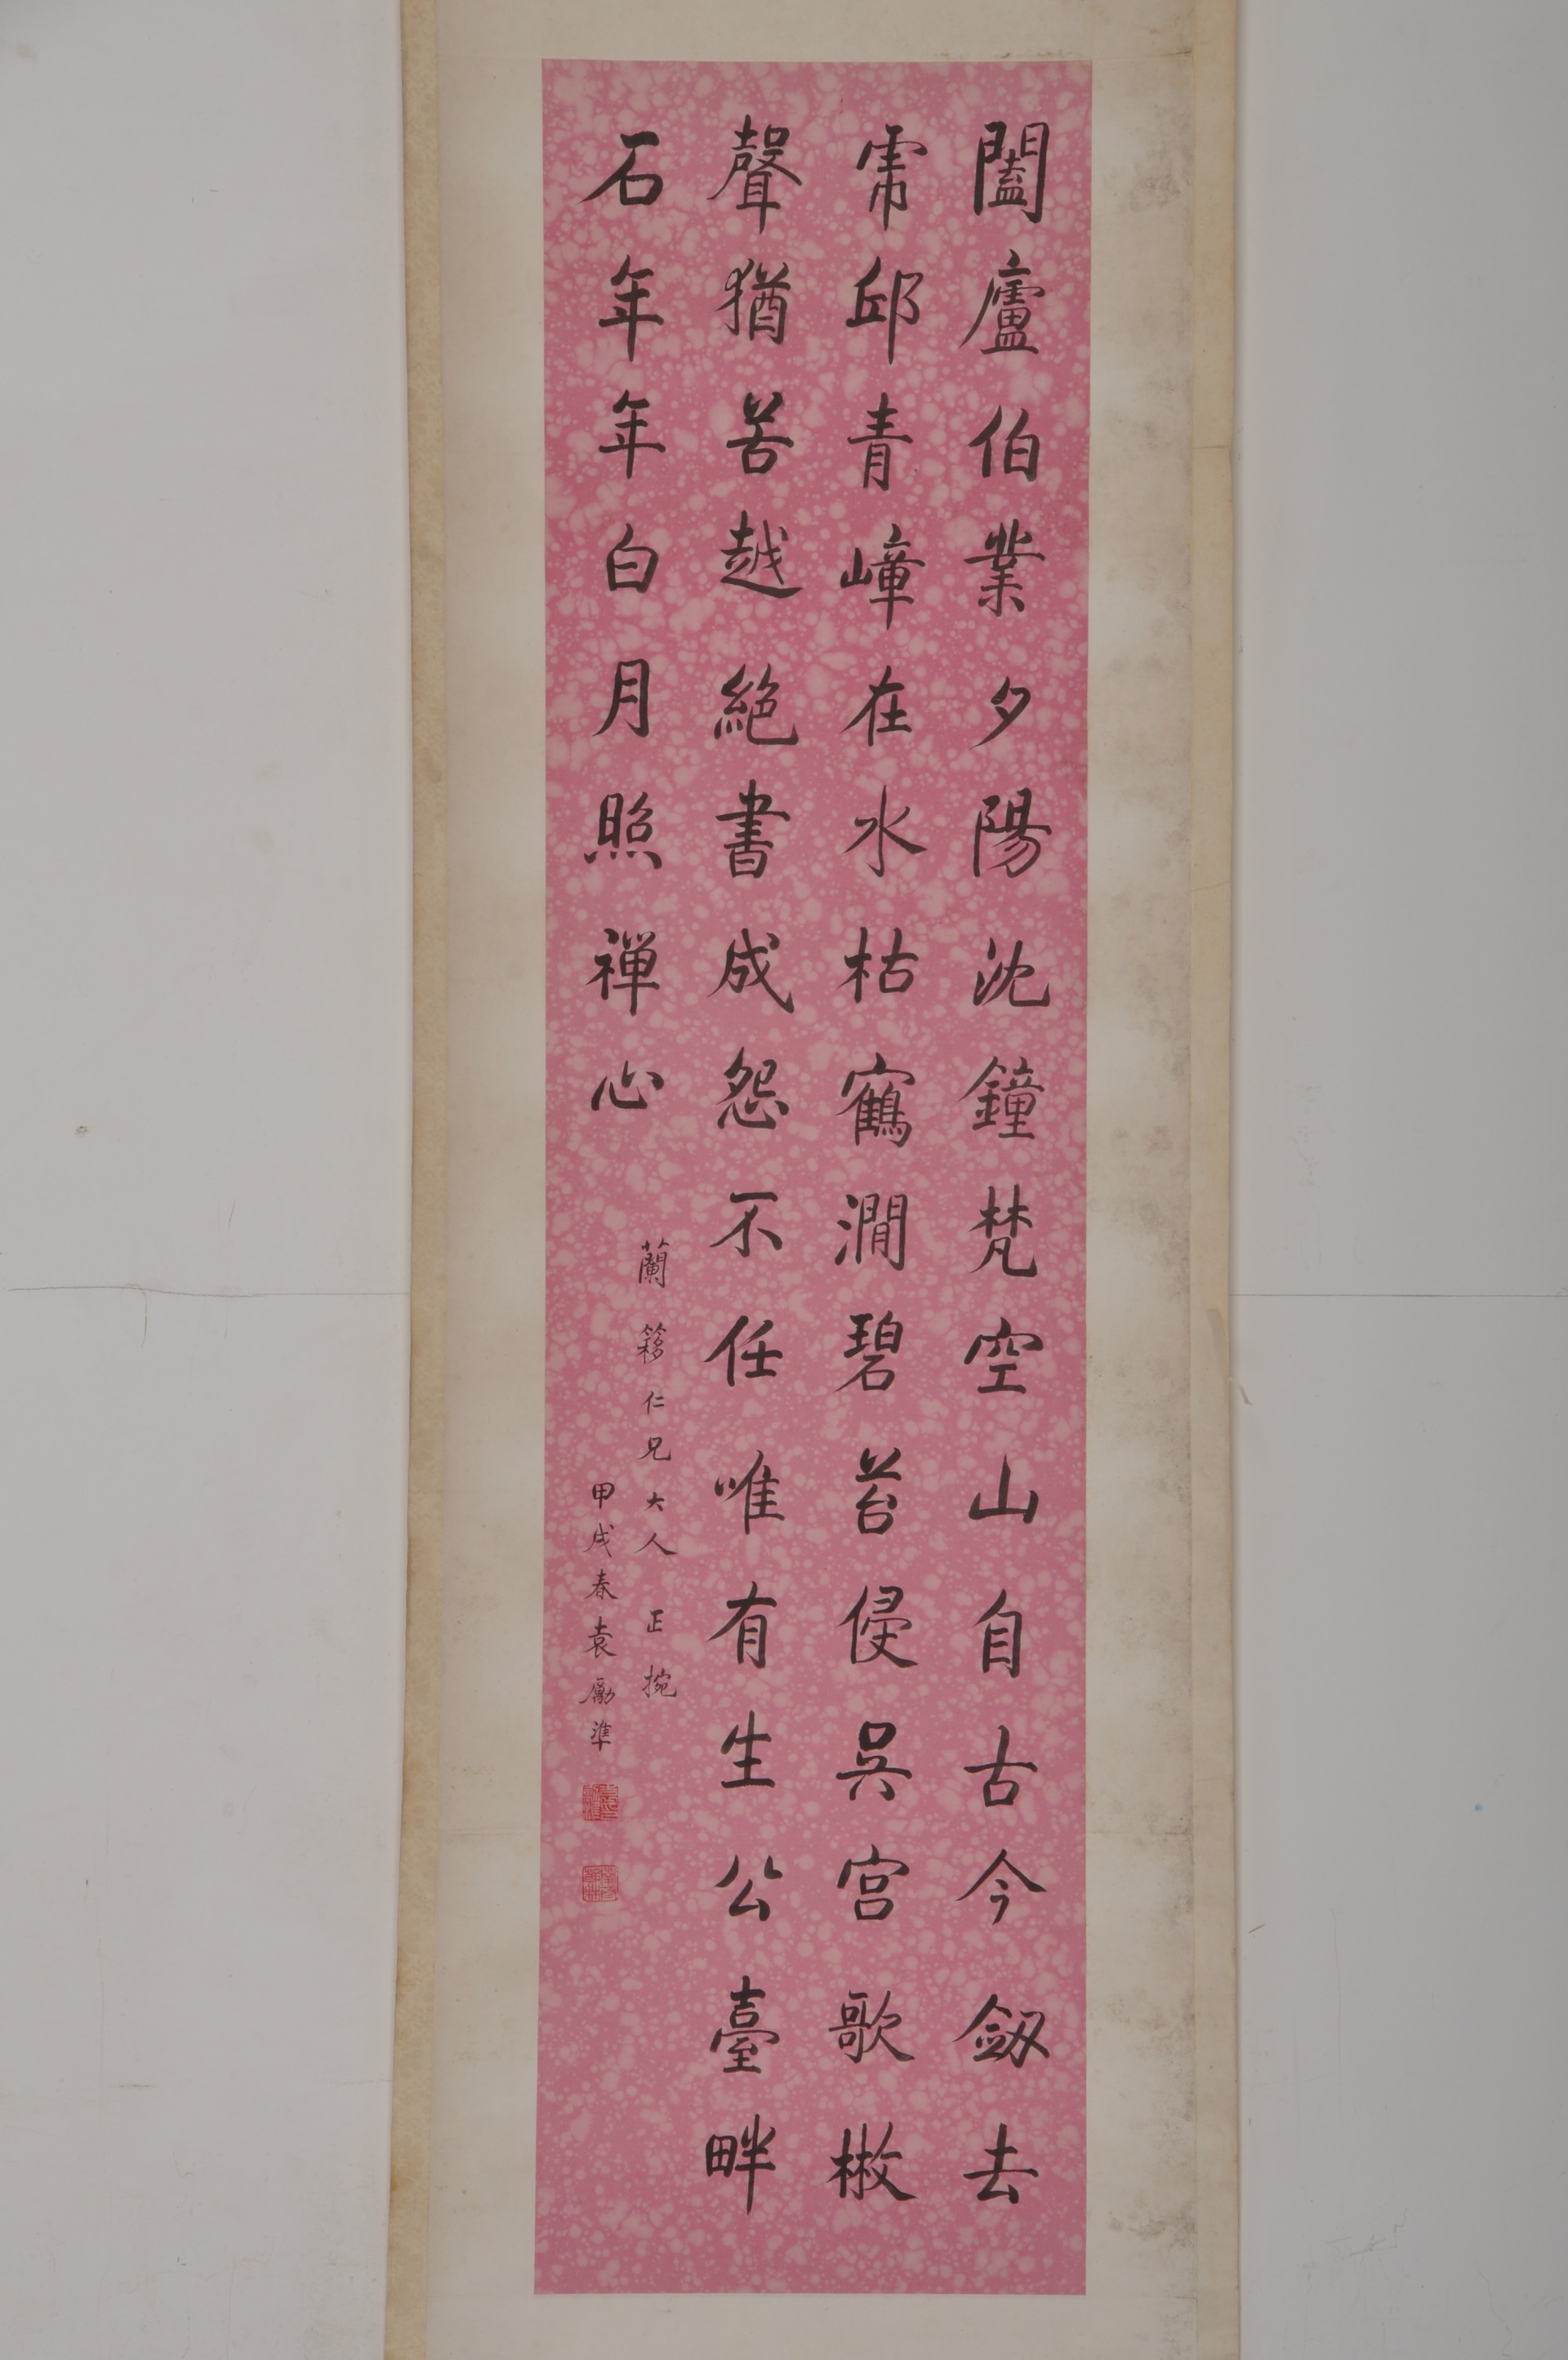 闔廬伯業夕陽沈鐘梵空山自古今劔去
虎邱青嶂在水枯鶴澗碧苔侵吳宮歌散
聲猶苦越絕書成怨不任唯有生公臺畔
石年年白月照禪心
蘭簃仁兄大人 正掔
甲戌春袁勵準